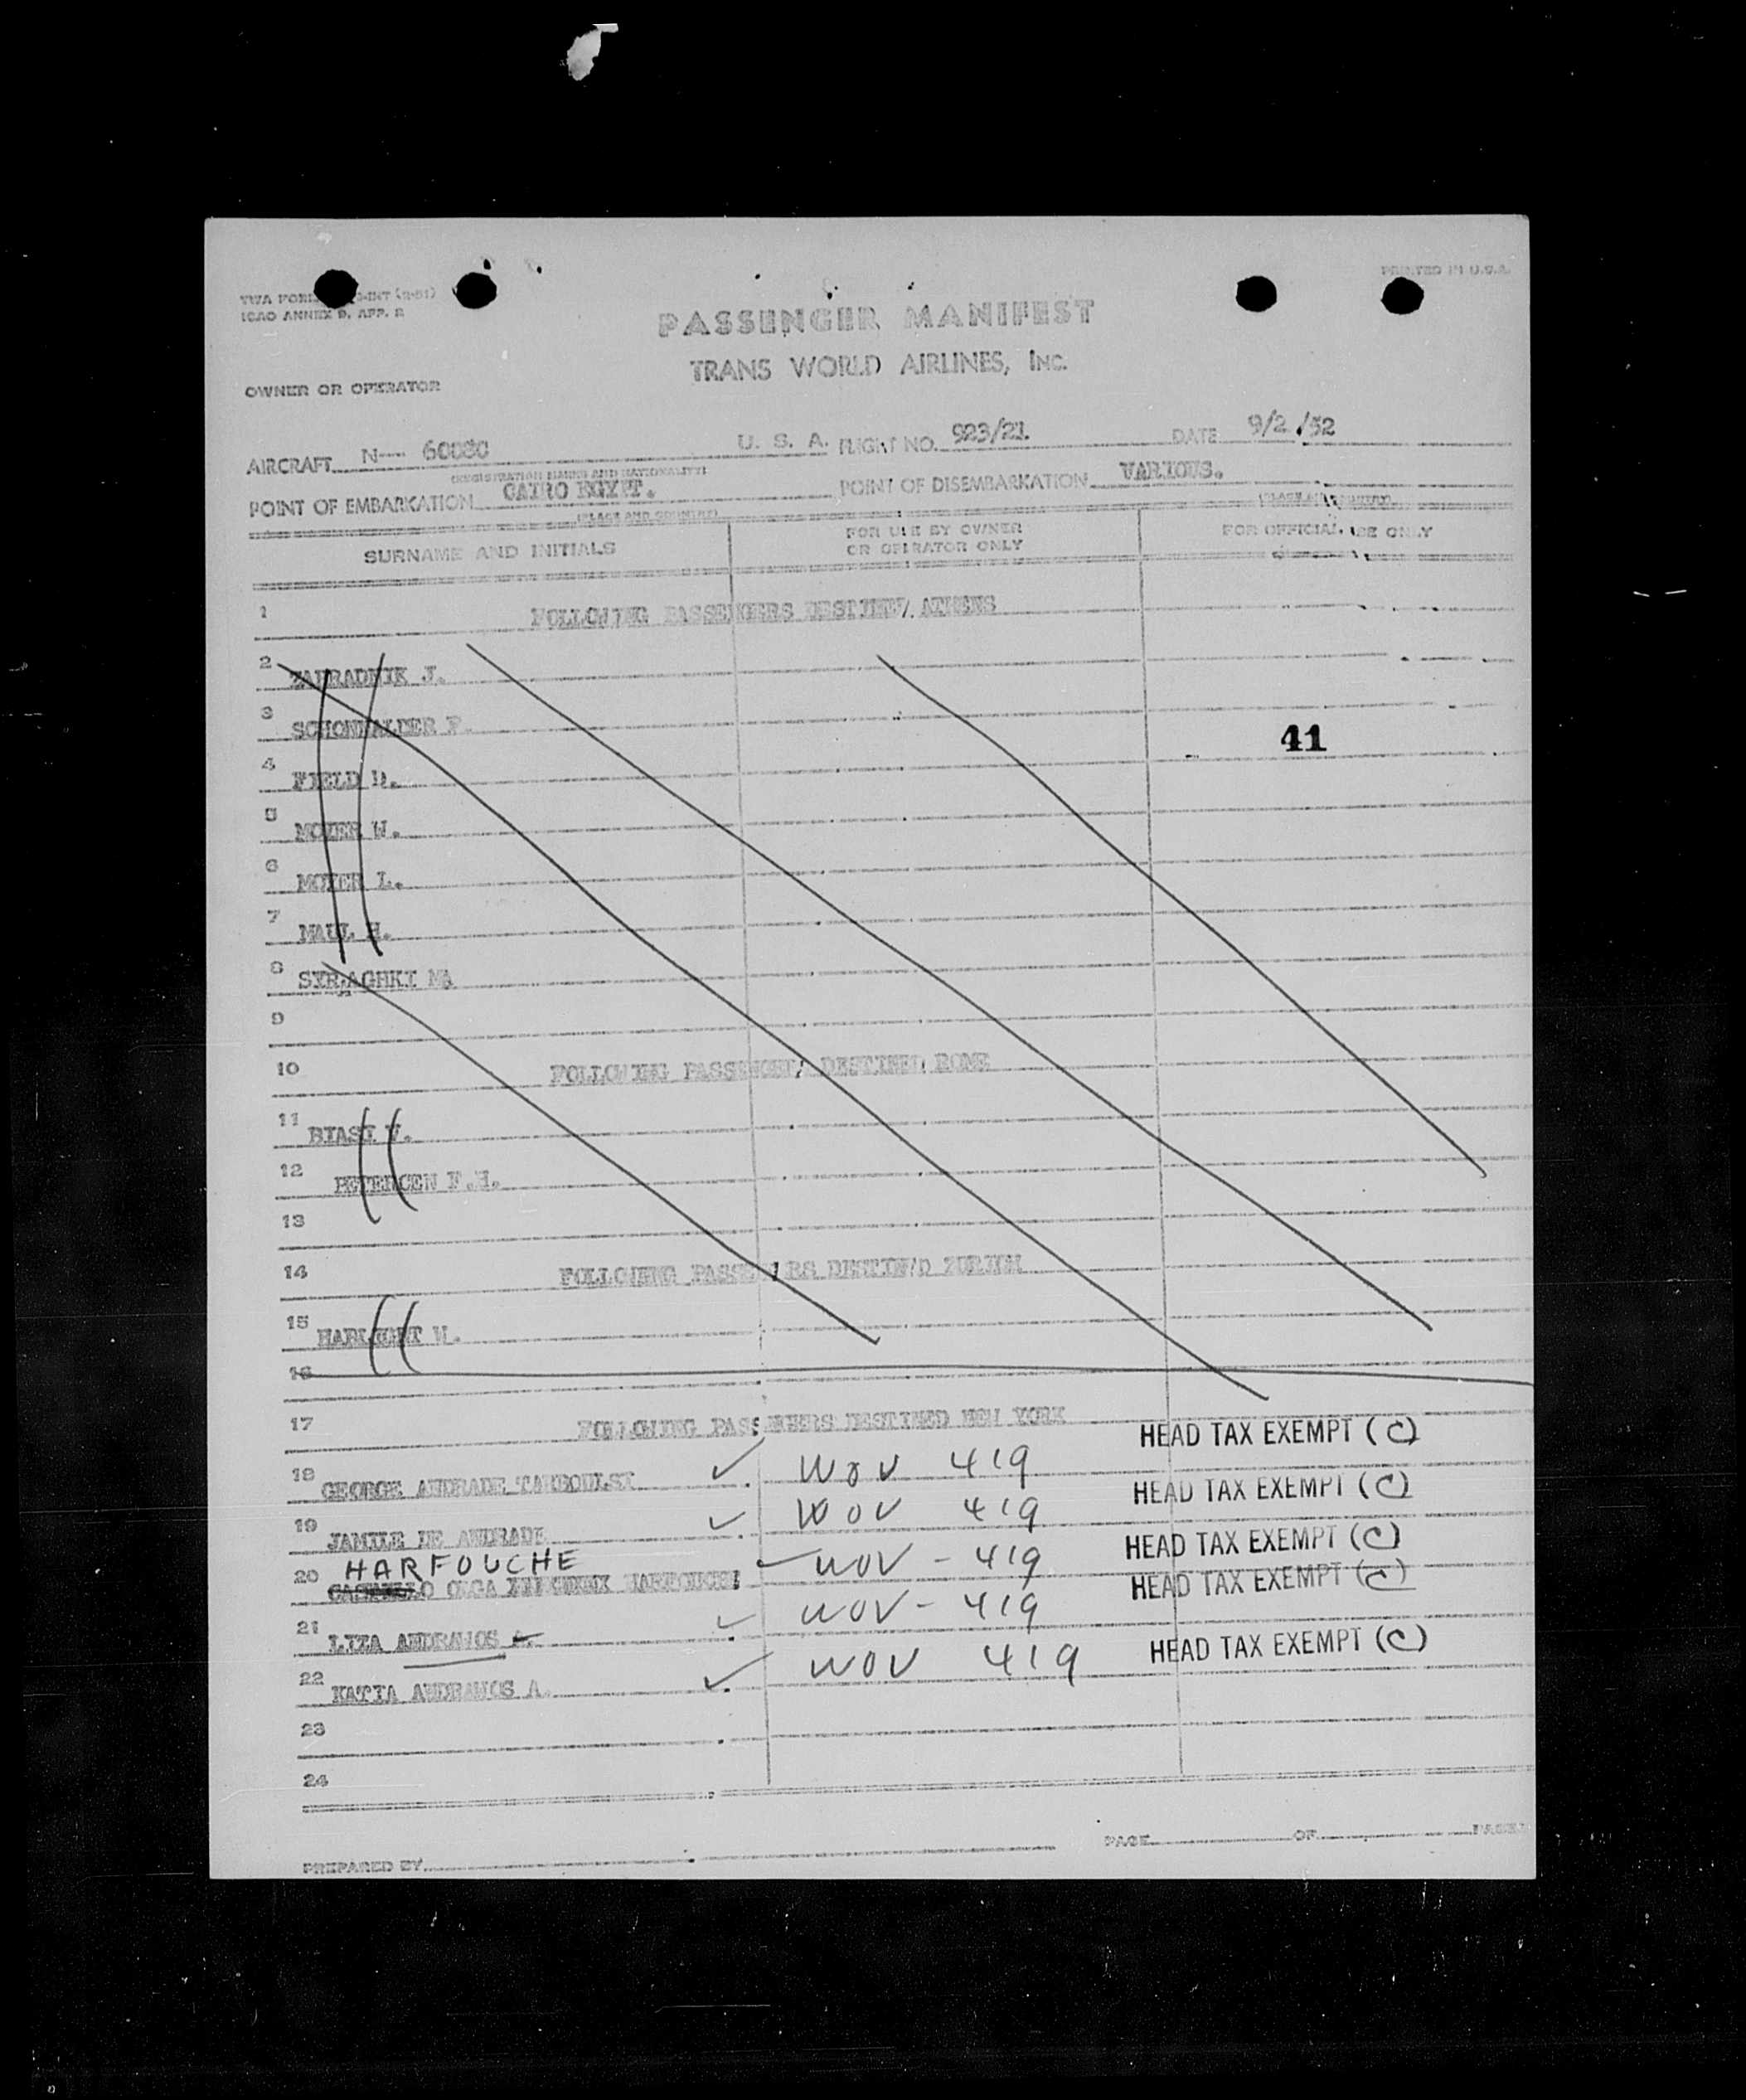 PRINTED IN U.S.A.
ICAO ANNEX 9, APP. 2
PASSENGER MANIFEST
TRANS WORLD AIRLINES, INC.
OWNER OR OPERATOR
AIRCRAFT N-- U. S. A. FLIGHT NO. 923/21 DATE 9/2/52
(REGISTRATION MARKS AND NATIONALITY)
POINT OF EMBARKATION CAIRO EGYPT. POINT OF DISEMBARKATION VARIOUS.
(PLACE AND COUNTRY) (PLACE AND COUNTRY)
SURNAME AND INITIALS FOR USE BY OWNER OR OPERATOR ONLY FOR OFFICIAL USE ONLY
1 FOLLOWING PASSENGERS DESTINED ATHENS
2 ZAHRADNIK J.
3 P.
41
4 FIELD D.
5 MOYER W.
6 MOYER L.
7 MAUL H.
8 MA
9
10 FOLLOWING PASSENGERS DESTINED ROME
11 BIASI V.
12 F.H.
13
14 FOLLOWING PASSENGERS DESTINED ZURICH
15 W.
16
17 FOLLOWING PASSENGERS DESTINED NEW YORK HEAD TAX EXEMPT (C)
18 GEORGE ANDRADE ✓ WOV 419 HEAD TAX EXEMPT (C)
19 JAMILE DE ANDRADE ✓ WOV 419 HEAD TAX EXEMPT (C)
HARFOUCHE
20 OLGA ✓ WOV - 419 HEAD TAX EXEMPT (C)
21 LIZA ANDRAWOS A. ✓ WOV - 419
22 KATIA ANDRAWOS A. ✓ WOV 419 HEAD TAX EXEMPT (C)
23
24
PAGE OF PAGES
PREPARED BY